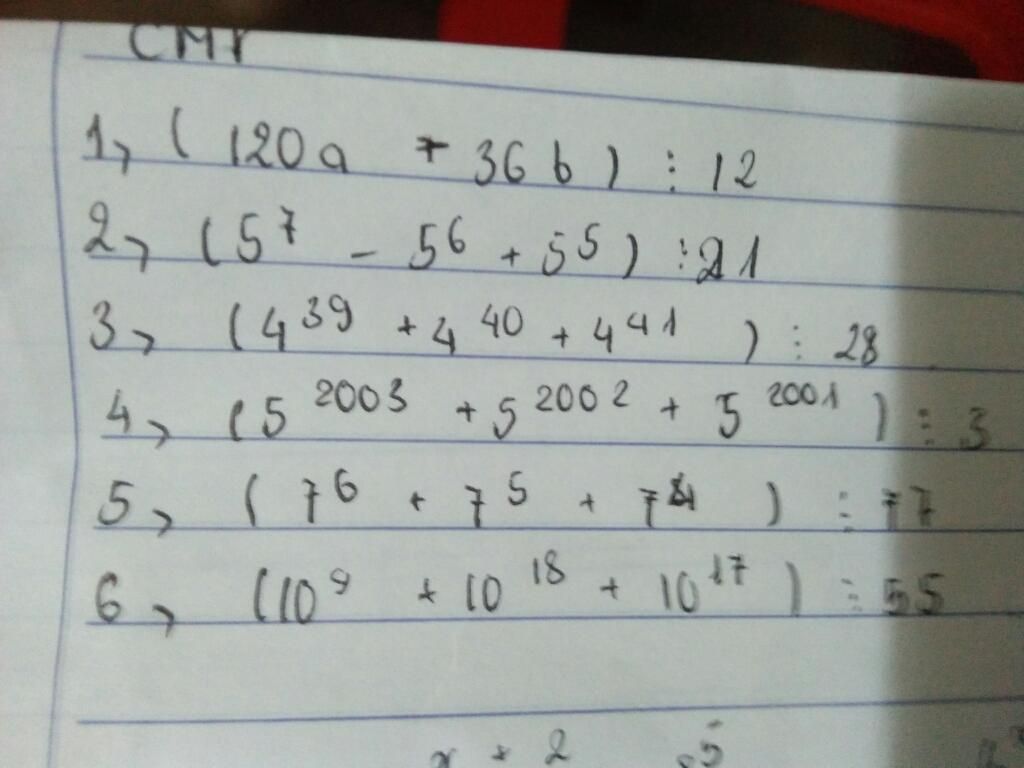 CMR
1, (120a + 36b) ⋮ 12
2, (5⁷ - 5⁶ + 5⁵) ⋮ 21
3, (4³⁹ + 4⁴⁰ + 4⁴¹) ⋮ 28
4, (5²⁰⁰³ + 5²⁰⁰² + 5²⁰⁰¹) ⋮ 3
5, (7⁶ + 7⁵ + 7⁴) ⋮ 77
6, (10⁹ + 10¹⁸ + 10¹⁷) ⋮ 55
x + 2 5